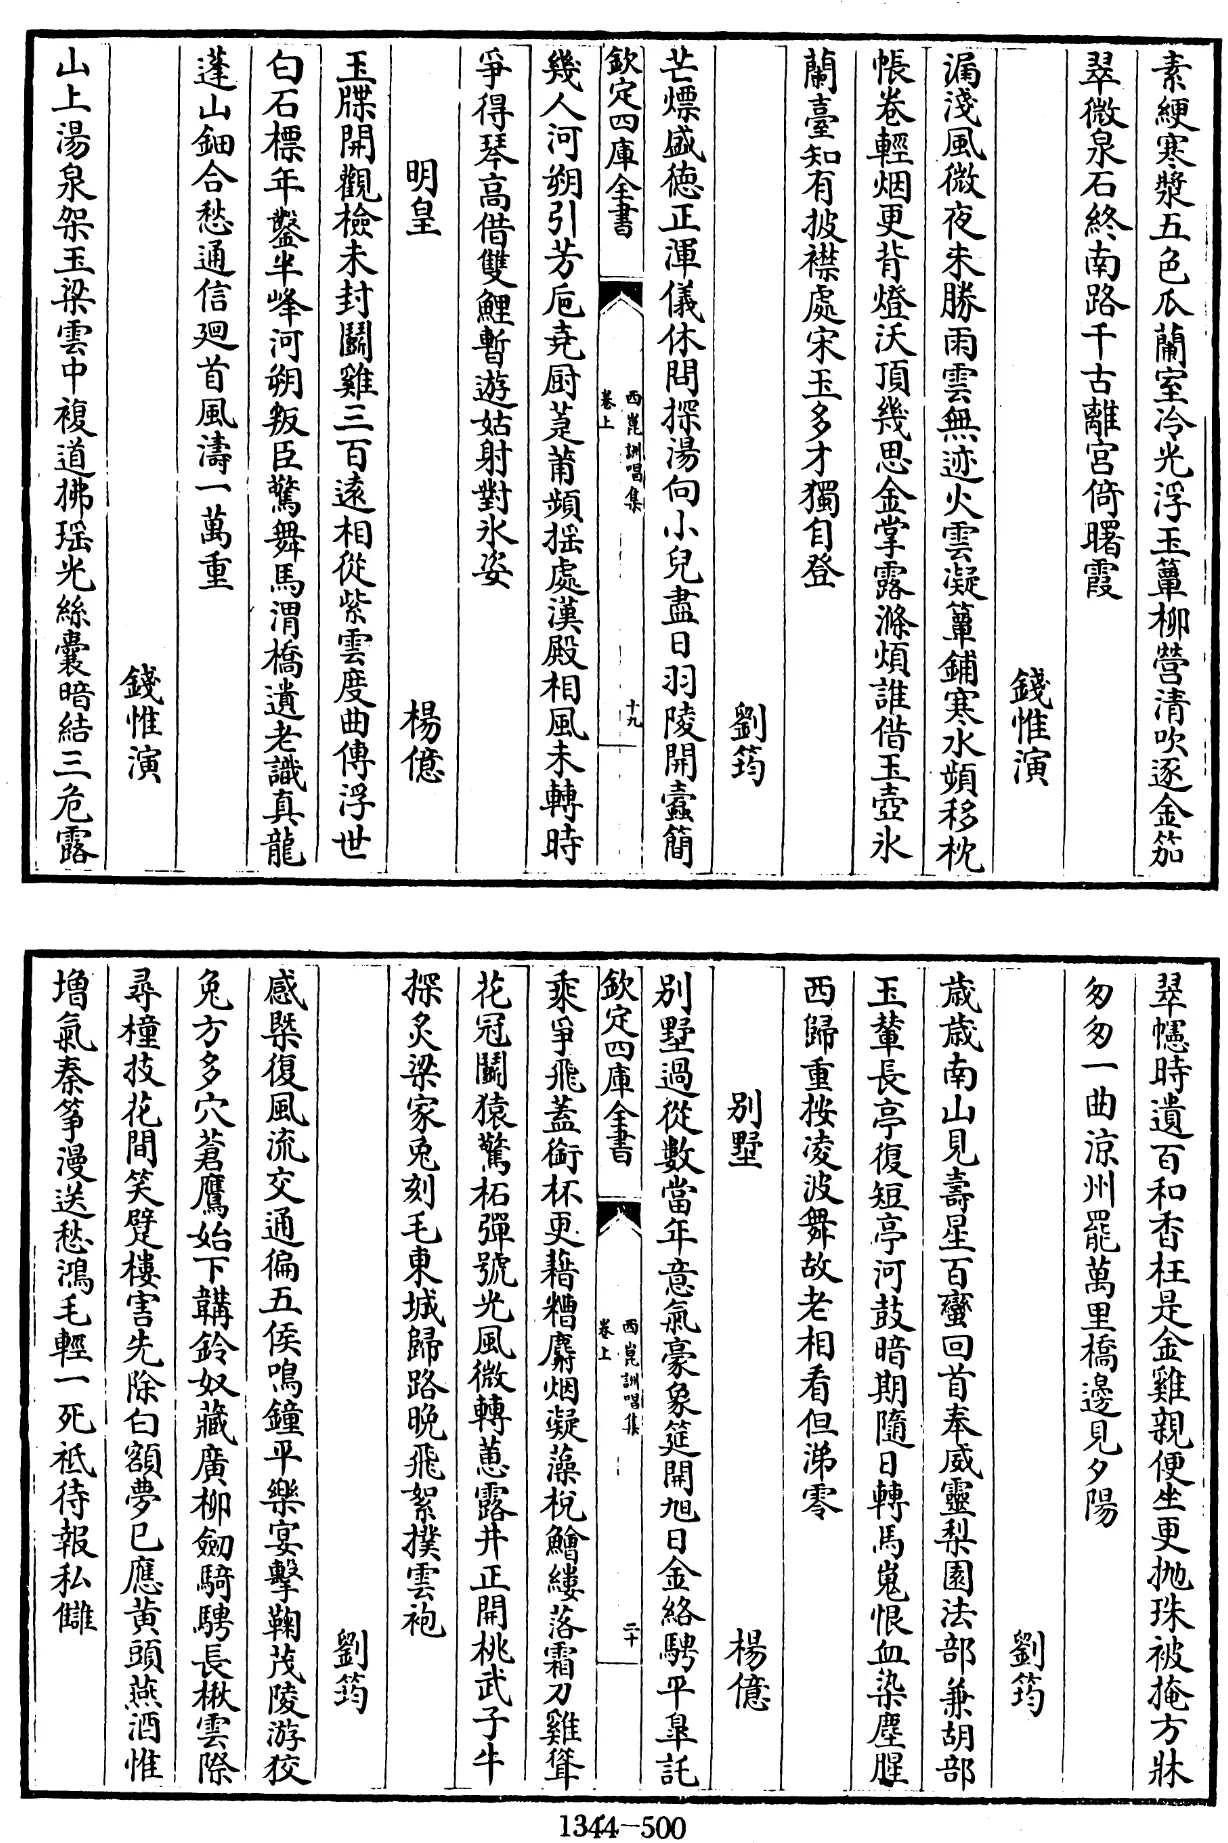 素綆寒漿五色瓜蘭室冷光浮玉簟柳營清吹逐金笳
翠微泉石終南路千古離宮倚曙霞
錢惟演
漏淺風微夜未勝雨雲無迹火雲凝簟鋪寒水頻移枕
帳卷輕烟更背燈沃頂幾思金掌露滌煩誰借玉壺氷
蘭臺知有披襟處宋玉多才獨自登
劉筠
芒熛盛德正渾儀休問探湯向小兒盡日羽陵開蠹簡
欽定四庫全書
西崑訓唱集
卷上
十九
幾人河朔引芳巵堯厨萐莆頻揺處漢殿相風未轉時
爭得琴高借雙鯉暫遊姑射對氷姿
明皇
楊億
玉牒開觀檢未封鬭雞三百遠相從紫雲度曲傳浮世
白石標年鑿半峰河朔叛臣驚舞馬渭橋遺老識真龍
蓬山鈿合愁通信廻首風濤一萬重
錢惟演
山上湯泉架玉梁雲中複道拂瑶光絲囊暗結三危露
翠幰時遺百和香枉是金雞親便坐更抛珠被掩方牀
匆匆一曲涼州罷萬里橋邊見夕陽
劉筠
歳歳南山見壽星百蠻回首奉威靈梨園法部兼胡部
玉輦長亭復短亭河鼓暗期隨日轉馬嵬恨血染塵腥
西歸重按凌波舞故老相看但涕零
别墅
楊億
别墅過從數當年意氣豪象筵開旭日金絡騁平臯託
欽定四庫全書
西崑訓唱集
卷上
二十
乘爭飛蓋銜杯更藉糟麝烟凝藻梲鱠縷落霜刀雞聳
花冠鬭猿驚柘彈號光風微轉蕙露井正開桃武子牛
探炙梁家兎刻毛東城歸路晚飛絮撲雲袍
劉筠
感槩復風流交通徧五侯鳴鐘平樂宴擊鞠茂陵游狡
兔方多穴蒼鷹始下韝鈴奴藏廣柳劒騎騁長楸雲際
尋橦技花間笑躄樓害先除白額夢已應黄頭燕酒惟
増氣秦筝漫送愁鴻毛輕一死袛待報私讎
1344—500